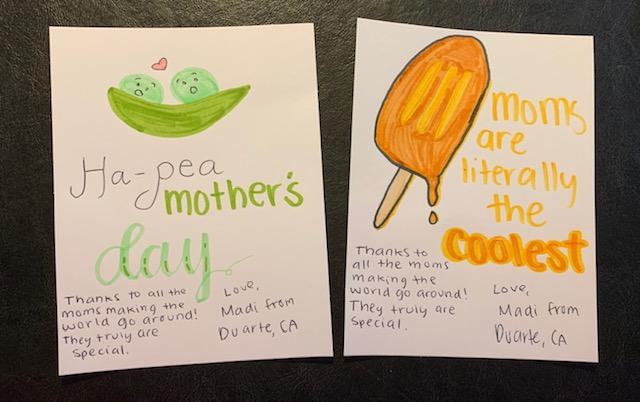 Ha-pea
mother's
day
Thanks to all the
moms making the
world go around!
They truly are
special.
Love,
Madi from
Duarte, CA
moms
are
literally
the
coolest
Thanks to
all the moms
making the
world go around!
They truly are
special.
Love,
Madi from
Duarte, CA